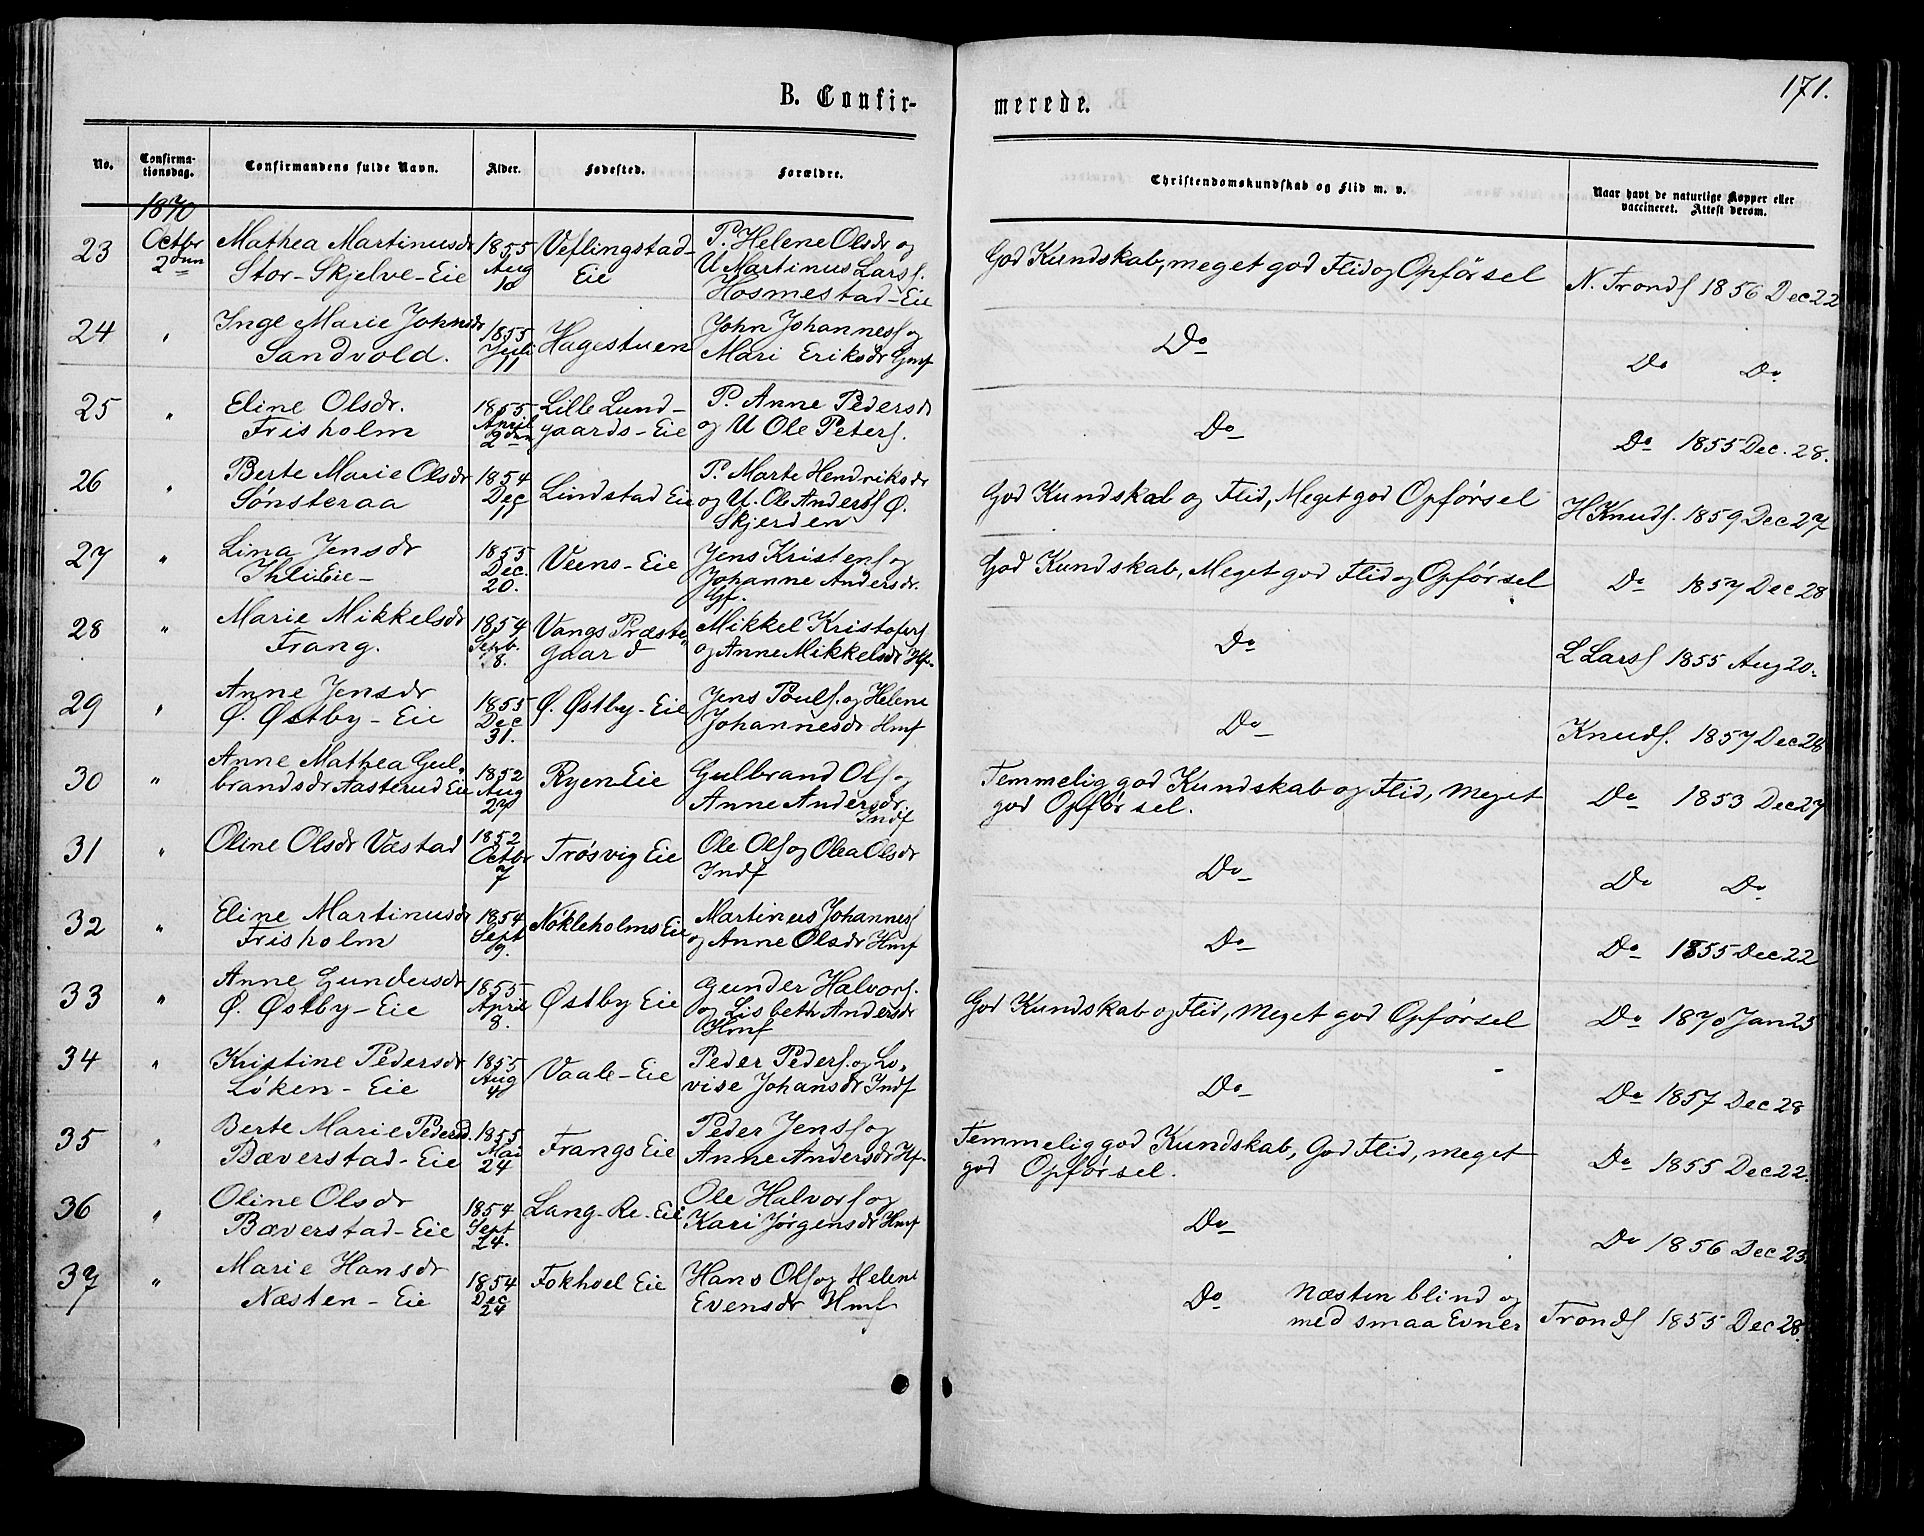 B. Confir-
merede.
171.
No.
Confirma-
tionsdag.
Confirmandens fulde Navn.
Alder.
Fødested.
Forældre.
Christendomskundskab og Flid m. v.
Naar havt de naturlige Kopper eller
vaccineret. Attest derom.
1870
23 Octbr 2den
Mathea Martinusdr
Stor-Skjelve-Eie
1855
Aug
10
Veflingstad-
Eie
P. Helene Olsdr og
U Martinus Larsf.
Hosmestad-Eie
God Kundskab, meget god Flid og Opførsel
N. Trondf 1856 Dec 22
24 "
Inge Marie Johnsdr
Sandvold.
1855
Juli
11
Hagestuen
John Johannesf og
Mari Eriksdr Gmf
Do
Do Do
25 "
Eline Olsdr.
Frisholm
1855
April
2den
Lille Lund-
gaards-Eie
P. Anne Pedersdr
og U Ole Petersf.
Do
Do 1855 Dec. 28.
26 "
Berte Marie Olsdr
Sønsteraa
1854
Dec
11
Lindstad Eie
P. Marte Hendriksdr
og U. Ole Andersf Ø.
Skjerden
God Kundskab og Flid, Meget god Opførsel
H Knudf. 1859 Dec 27
27 "
Lina Jensdr
Ihli Eie-
1855
Dec.
20.
Veens-Eie
Jens Kristenf og
Johanne Andersdr.
Gf.
God Kundskab, Meget god Flid og Opførsel
Do 1857 Dec 28
28 "
Marie Mikkelsdr
Frang.
1854
Septb.
18.
Vangs Præste
gaard
Mikkel Kristofersf
og Anne Mikkelsdr Hf.
Do
L Larsf 1855 Aug 20.
29 "
Anne Jensdr
Ø. Østby-Eie
1855
Dec
31.
Ø. Østby-Eie
Jens Poulsf. og Helene
Johannesdr Hmf
Do
Knudf. 1857 Dec 28
30 "
Anne Mathea Gul-
brandsdr Aasterud Eie
1852
Aug
27
Ryen Eie
Gulbrand Olsf og
Anne Andersdr.
Indf
Temmelig god Kundskab og Flid, Meget
god Opførsel.
Do 1853 Dec 27
31 "
Oline Olsdr Væstad
1852
Octbr
7
Trøsvig Eie
Ole Olsf og Olea Olsdr
Indf
Do
Do Do
32 "
Eline Martinusdr
Frisholm
1854
Sept
9.
Nøkleholms Eie
Martinus Johannesf
og Anne Olsdr Hmf
Do
Do 1855 Dec 22
33 "
Anne Gundersdr
Ø. Østby-Eie
1855
April
8.
Østby Eie
Gunder Halvorsf.
og Lisbeth Andersdr
Hmf
God Kundskab og Flid, Meget god Opførsel
Do 1870 Jan 25
34 "
Kristine Pedersdr
Løken-Eie
1855
Aug
4
Vaale-Eie
Peder Pedersf. og Lo-
vise Johansdr Indf
Do
Do 1857 Dec 28
35 "
Berte Marie Pedersd.
Bæverstad-Eie
1855
Mai
24
Frangs Eie
Peder Jensf og
Anne Andersdr Hf.
Temmelig god Kundskab, God Flid, meget
god Opførsel.
Do 1855 Dec 22.
36 "
Oline Olsdr
Bæverstad-Eie
1854
Sept
24.
Lang-Re-Eie
Ole Halvorsf og
Kari Jørgensdr Hmf
Do
Do 1856 Dec 23.
37 "
Marie Hansdr
Næsten-Eie
1854
Dec
24
Fokhoel Eie
Hans Olsf og Helene
Evensdr Hmf
Do Næsten blind og
med smaa Evner
Trondf 1855 Dec 28.